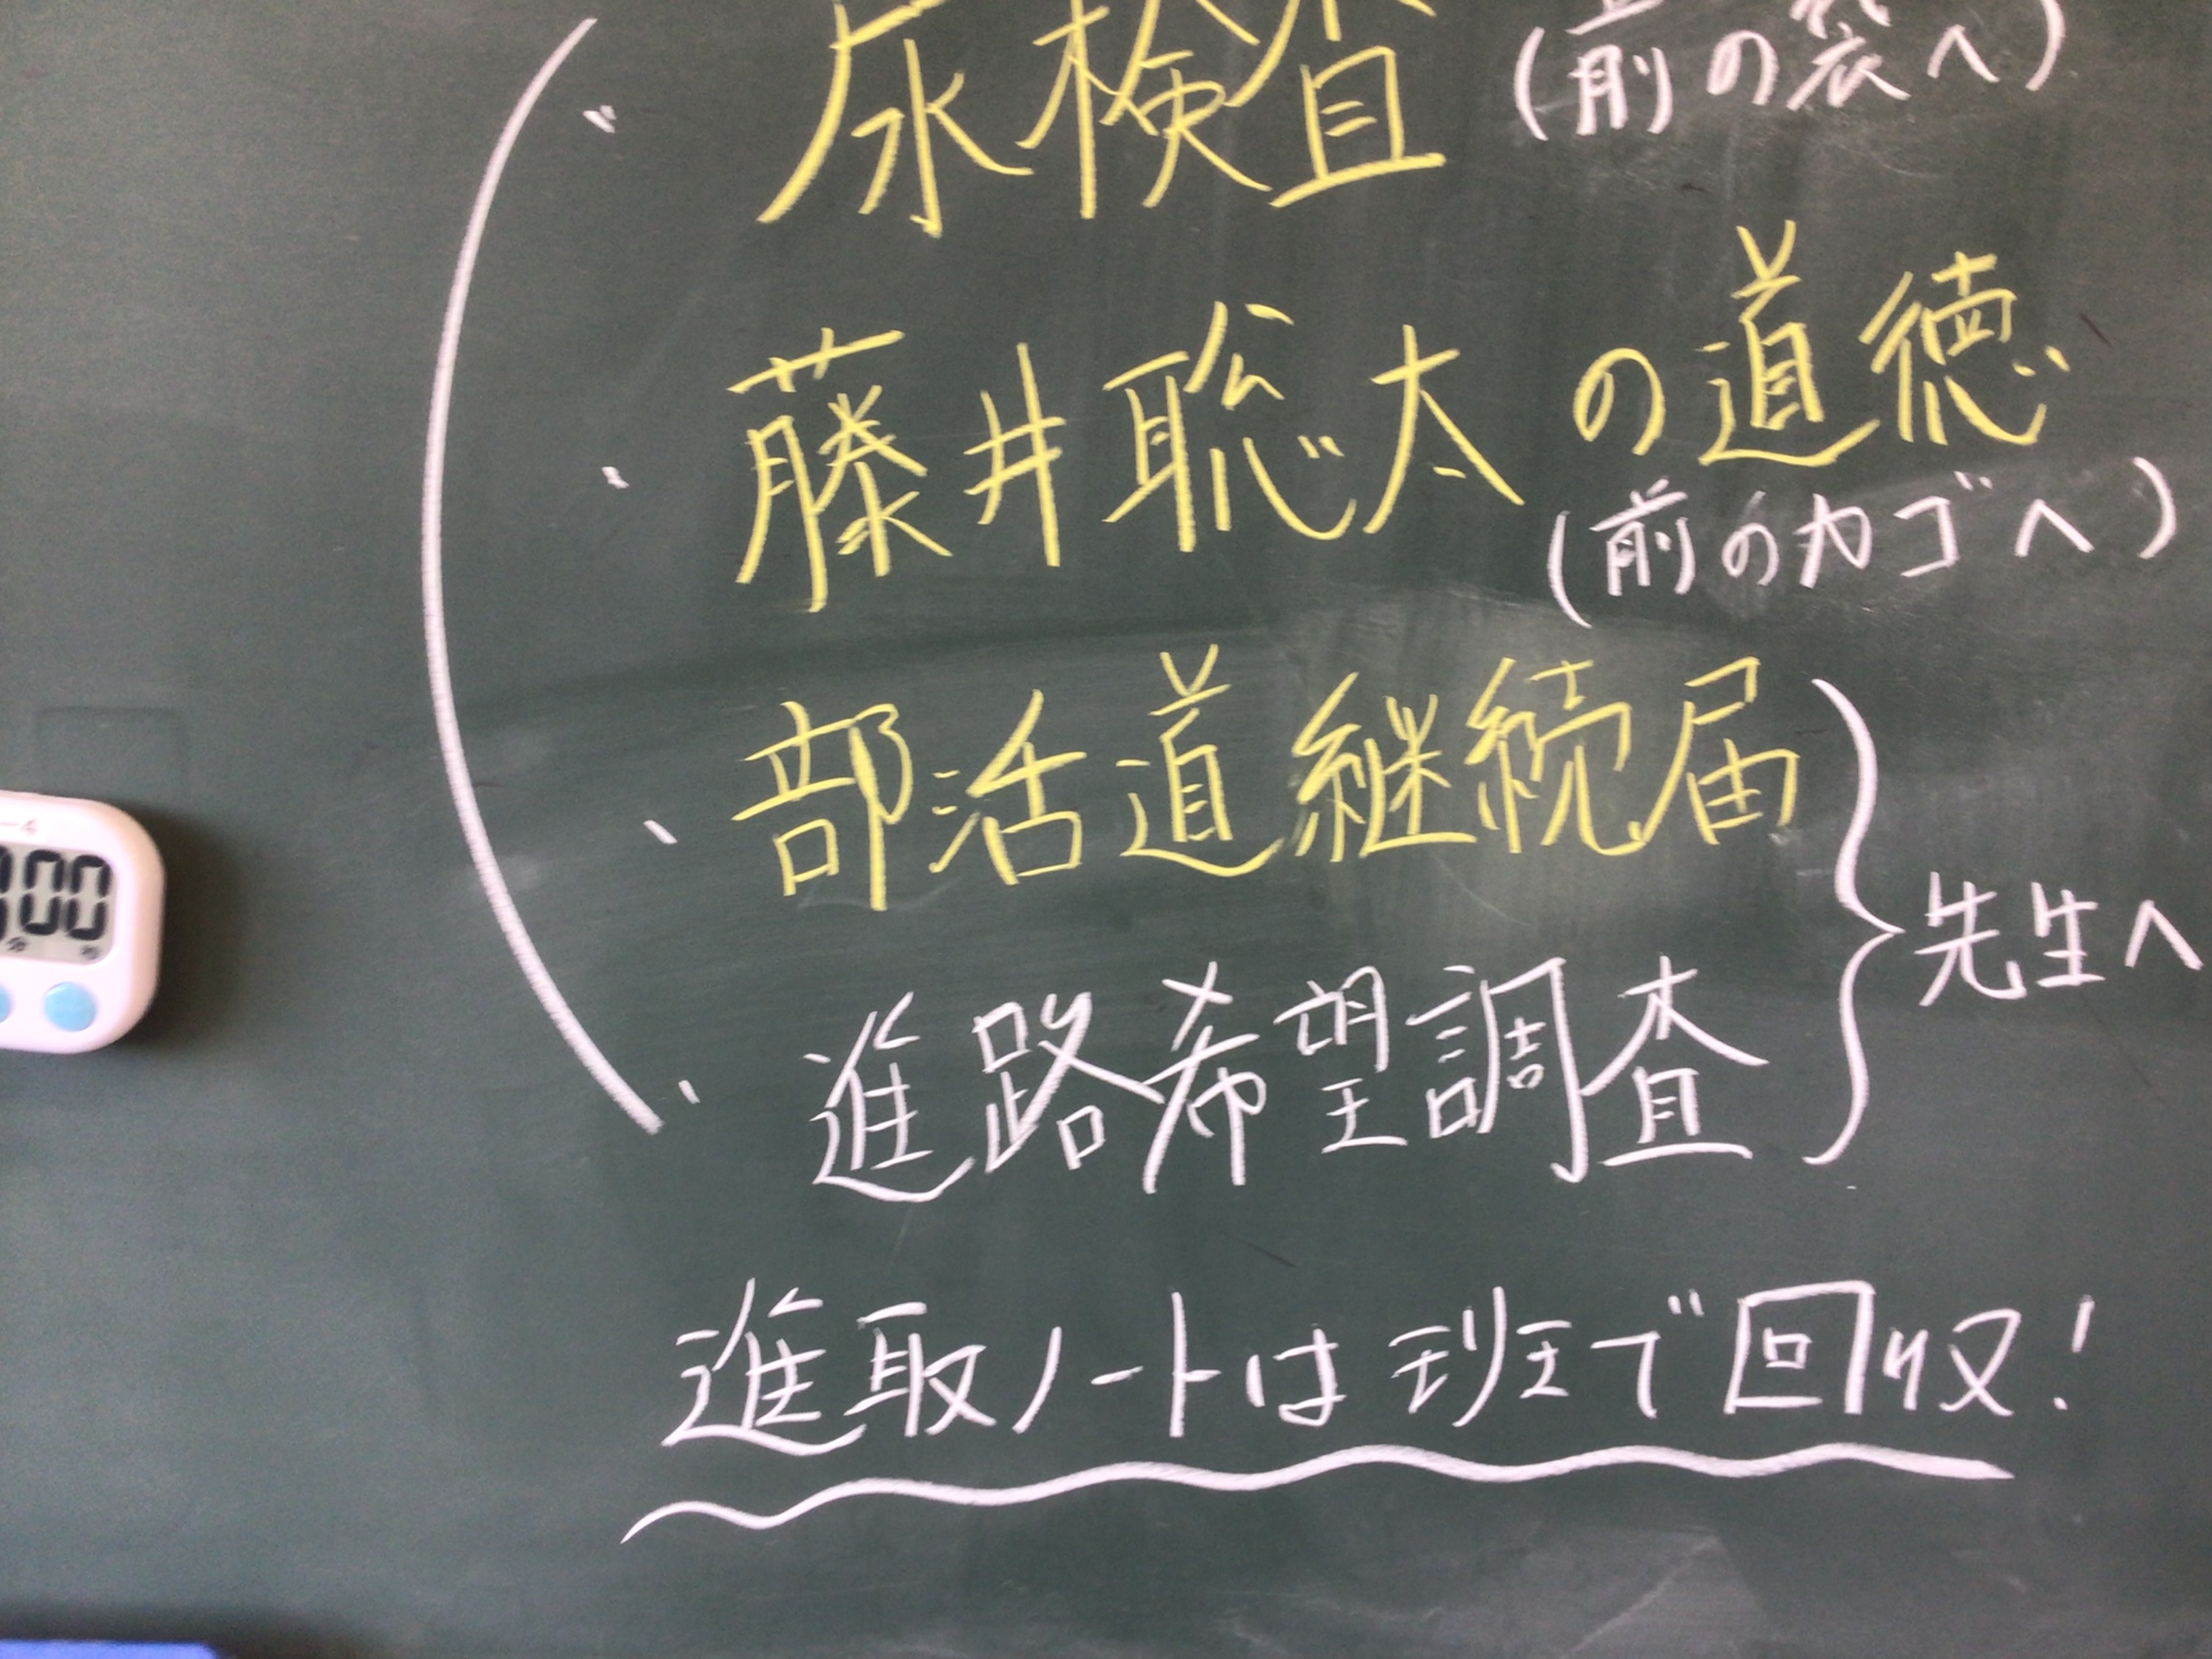 尿検査 (前の袋へ)
藤井聡太の道徳
(前のカゴへ)
部活道継続届
進路希望調査
先生へ
進取ノートは班で回収!
00